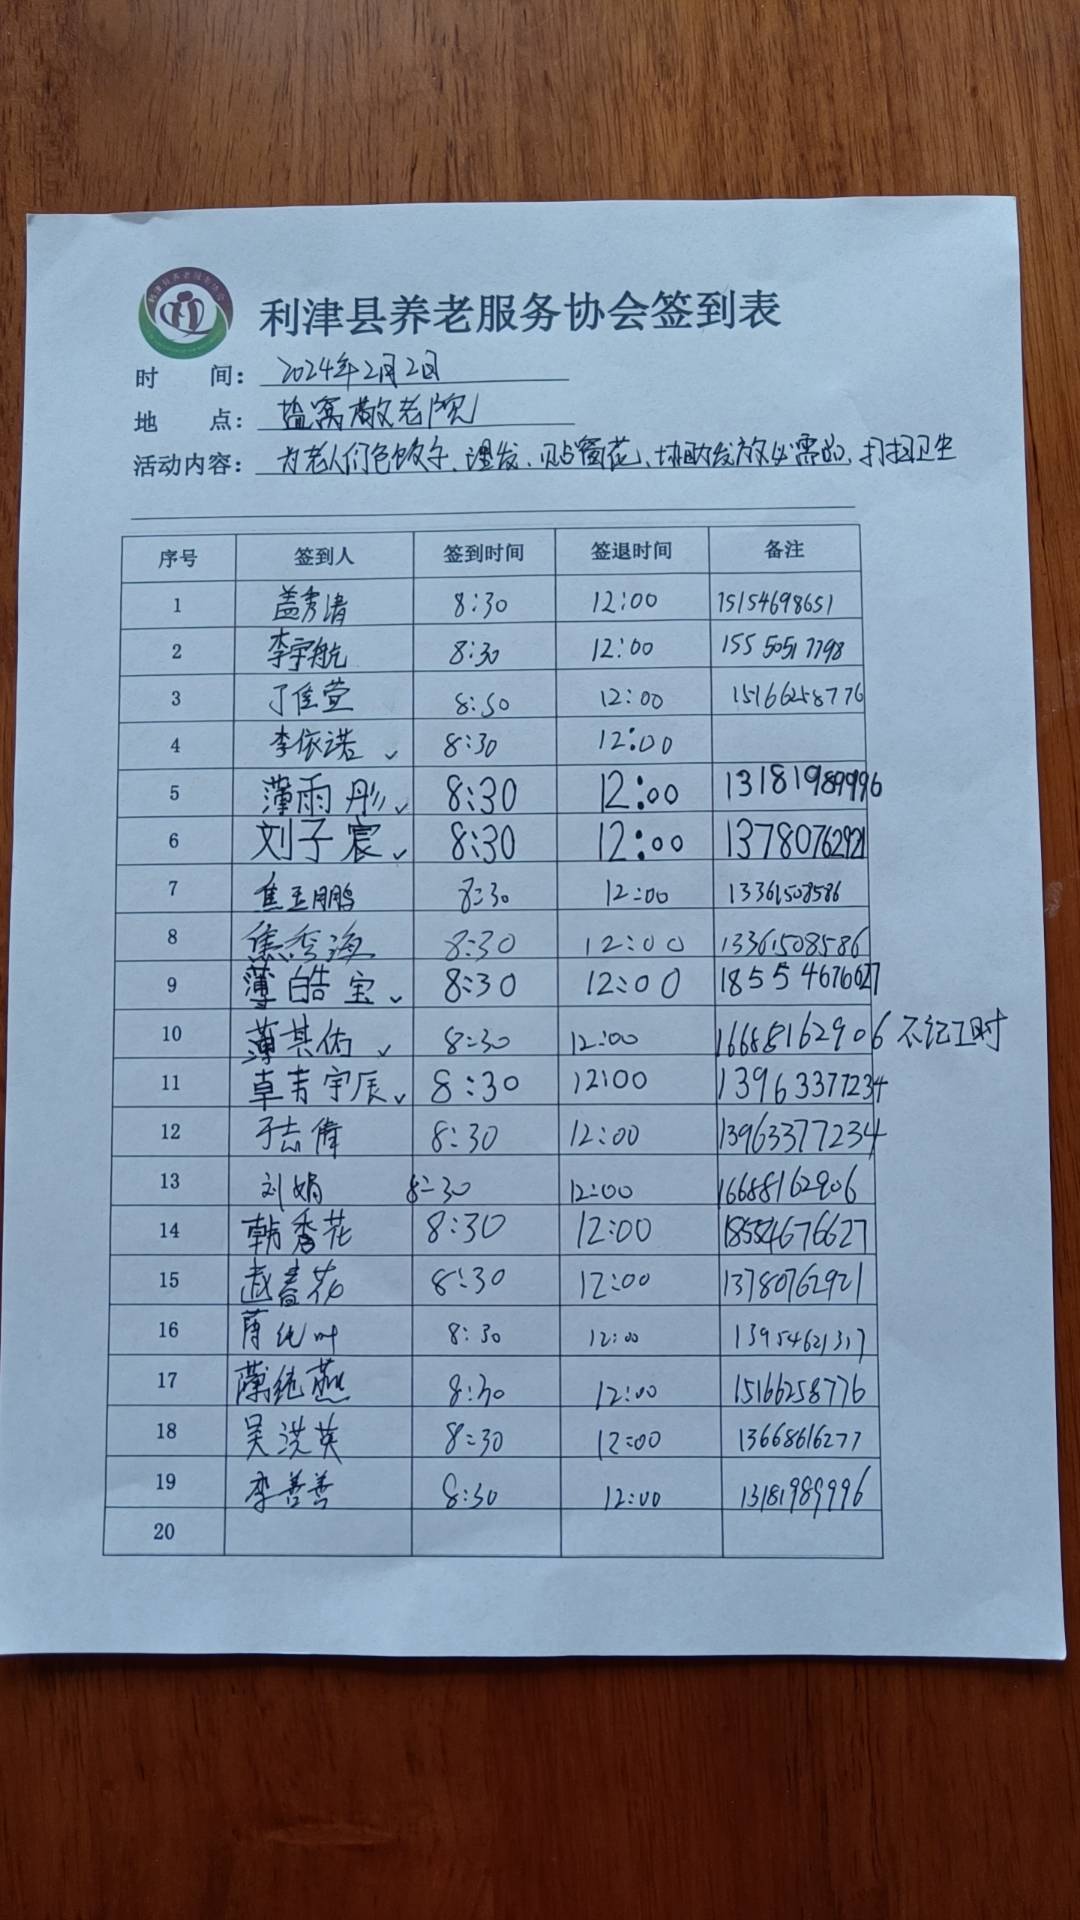 利津县养老服务协会
利津县养老服务协会签到表
时 间：2024年2月2日
地 点：盐窝敬老院
活动内容：为老人们包饺子、理发、贴窗花、协助发放必需品、打扫卫生
序号 签到人 签到时间 签退时间 备注
1 盖秀清 8:30 12:00 15154698651
2 李宇航 8:30 12:00 15550517798
3 丁佳萱 8:30 12:00 15166258776
4 李依诺 ✓ 8:30 12:00
5 薄雨彤 ✓ 8:30 12:00 13181989996
6 刘子宸 ✓ 8:30 12:00 13780762921
7 焦玉鹏 8:30 12:00 13361508586
8 焦秀海 8:30 12:00 13361508586
9 薄皓宝 ✓ 8:30 12:00 18554676627
10 薄其佑 ✓ 8:30 12:00 16688162906 不记工时
11 卓青宇辰 ✓ 8:30 12:00 13963377234
12 于志伟 8:30 12:00 13963377234
13 刘娟 8:30 12:00 16688162906
14 韩秀花 8:30 12:00 18554676627
15 赵春花 8:30 12:00 13780762921
16 8:30 12:00 13954621317
17 纯燕 8:30 12:00 15166258776
18 吴洪英 8:30 12:00 13668616277
19 李善善 8:30 12:00 13181989996
20